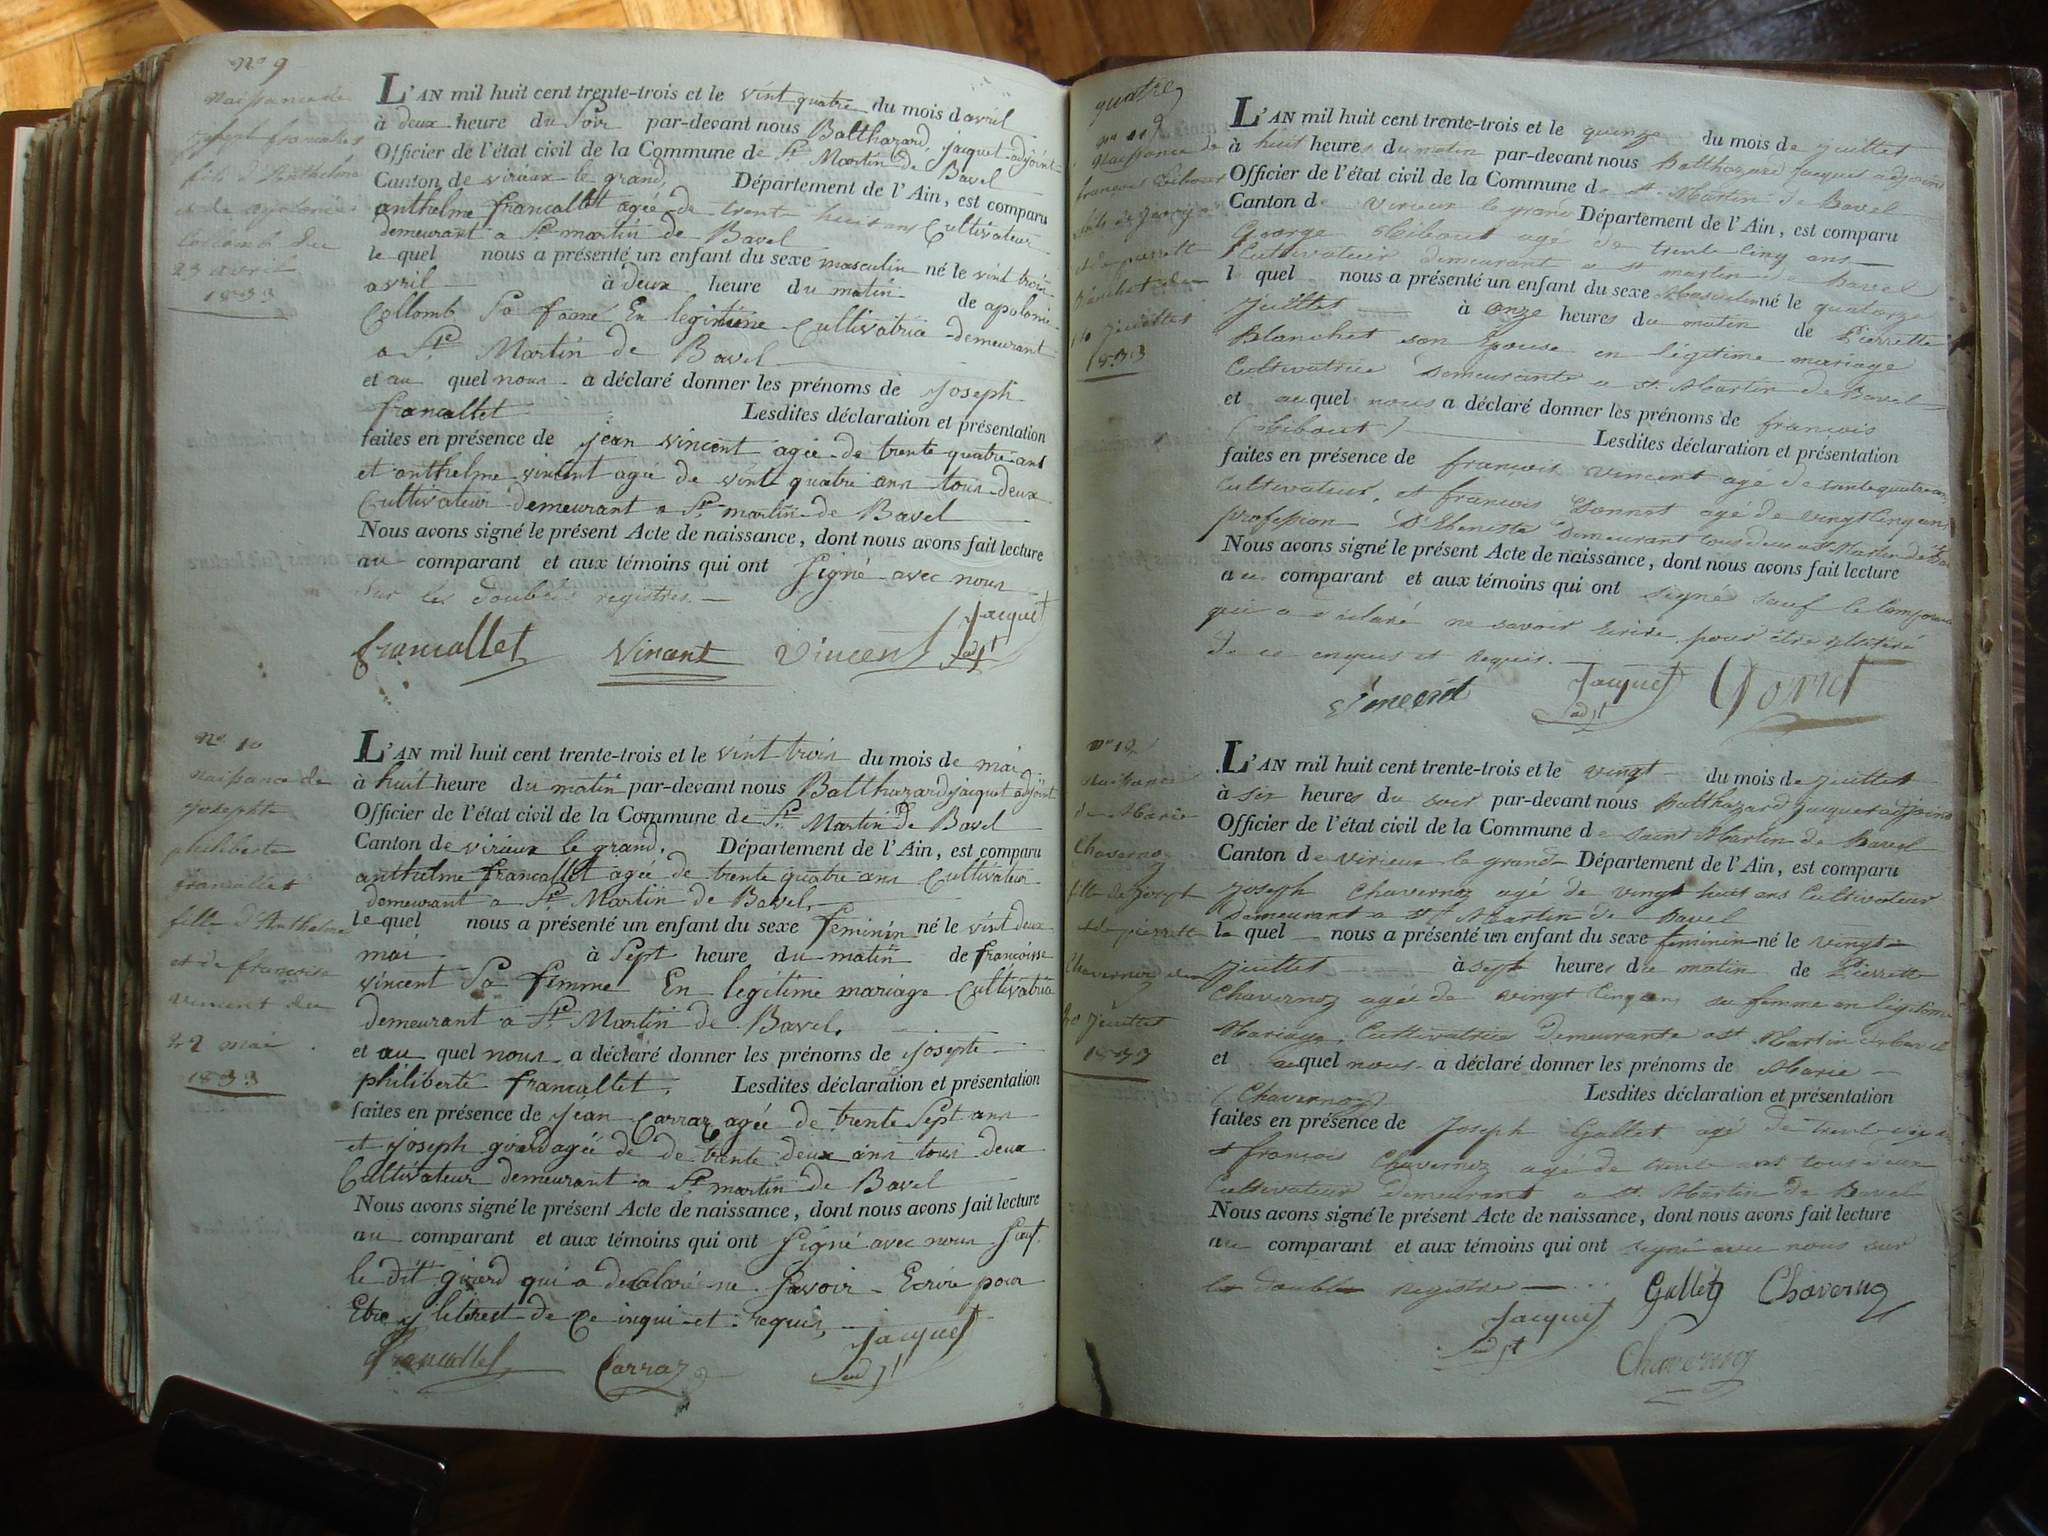 No 9
Naissance de
joseph francallet
fils d'Anthelme
et de apolonie
Collomb du
23 avril
1833
L'AN mil huit cent trente-trois et le vint quatre du mois d avril
à deux heure du Soir par-devant nous Balthazard jacquet adjoint
Officier de l'état civil de la Commune de St Martin de Bavel
Canton de virieux le grand, Département de l'Ain, est comparu
anthelme francallet agée de trent huit ans Cultivateur
demeurant a St martin de Bavel
le quel nous a présenté un enfant du sexe masculin né le vint trois
avril à deux heure du matin de apolonie
Collomb Sa fame En legitime Cultivatrice demeurant
a St Martin de Bavel
et au quel nous a déclaré donner les prénoms de joseph
francallet Lesdites déclaration et présentation
faites en présence de jean vincent agée de trente quatre ans
et anthelme vincent agée de vint quatre ans tous deux
Cultivateur demeurant a St martin de Bavel
Nous avons signé le présent Acte de naissance, dont nous avons fait lecture
au comparant et aux témoins qui ont Signé avec nous
Sur les doubles registres.
francallet Vincent Vincent Jacquet
adjt
No 10
naissance de
josephte
philiberte
francallet
fille d'Anthelme
et de françoise
vincent du
22 mai
1833
L'AN mil huit cent trente-trois et le vint trois du mois de mai
à huit heure du matin par-devant nous Balthazard jacquet adjoint
Officier de l'état civil de la Commune de St Martin de Bavel
Canton de virieux le grand, Département de l'Ain, est comparu
anthelme francallet agée de trente quatre ans Cultivateur
demeurant a St Martin de Bavel,
le quel nous a présenté un enfant du sexe feminin né le vint deux
mai à Sept heure du matin de francoisse
vincent Sa femme En legitime mariage Cultivatrice
demeurant a St Martin de Bavel,
et au quel nous a déclaré donner les prénoms de josepte
philiberte francallet, Lesdites déclaration et présentation
faites en présence de jean Carraz agée de trente Sept ans
et joseph girard agée de de trente deux ans tous deux
Cultivateur demeurant a St martin de Bavel
Nous avons signé le présent Acte de naissance, dont nous avons fait lecture
au comparant et aux témoins qui ont Signé avec nous Sauf
le dit girard qui a declaré ne Savoir Ecrire pour
Etre de ce inqui et requis,
francallet Carraz Jacquet
adjt
quatre
no 11
Naissance de
françois
fils de George
et de pierrette
Blanchet du
14 juillet
1833
L'AN mil huit cent trente-trois et le quinze du mois de juillet
à huit heures du matin par-devant nous Balthazard Jacquet adjoint
Officier de l'état civil de la Commune de St Martin de Bavel
Canton de virieux le grand Département de l'Ain, est comparu
George agé de trente cinq ans
Cultivateur demeurant a St martin de Bavel
l quel nous a présenté un enfant du sexe Masculin né le quatorze
juillet à onze heures du matin de Pierrette
Blanchet son Epouse en légitime mariage
Cultivatrice Demeurante a St Martin de Bavel
et auquel nous a déclaré donner les prénoms de francois
Lesdites déclaration et présentation
faites en présence de francois vincent agé de trente quatre ans
Cultivateur, et francois agé de vingt cinq ans
profession Demeurant tous deux a St Martin de Bavel
Nous avons signé le présent Acte de naissance, dont nous avons fait lecture
au comparant et aux témoins qui ont signé Sauf le Comparant
qui a déclaré ne savoir Ecrire pour être
de ce enquis et requis.
Vincent Jacquet
adjt
no 12
Naissance
de Marie
Chavernoz
fille de Joseph
et de pierrette
Chavernoz du
20 Juillet
1833
L'AN mil huit cent trente-trois et le vingt du mois de juillet
à six heures du soir par-devant nous Balthazard Jacquet adjoint
Officier de l'état civil de la Commune de Saint Martin de Bavel
Canton de virieux le grand Département de l'Ain, est comparu
Joseph Chavernoz agé de vingt huit ans Cultivateur
Demeurant a St Martin de Bavel
le quel nous a présenté un enfant du sexe feminin né le vingt
juillet à sept heures du matin de Pierrette
Chavernoz agée de vingt cinq ans sa femme en légitime
Mariage, Cultivatrice Demeurante a St Martin de bavel
et auquel nous a déclaré donner les prénoms de Marie
(Chavernoz) Lesdites déclaration et présentation
faites en présence de Joseph Gallet agé de
et françois Chavernoz agé de trente ans tous deux
Cultivateur Demeurant a St Martin de Bavel
Nous avons signé le présent Acte de naissance, dont nous avons fait lecture
au comparant et aux témoins qui ont signé avec nous sur
les doubles registre
Gallet Chavernoz
Jacquet
adjt
Chavernoz